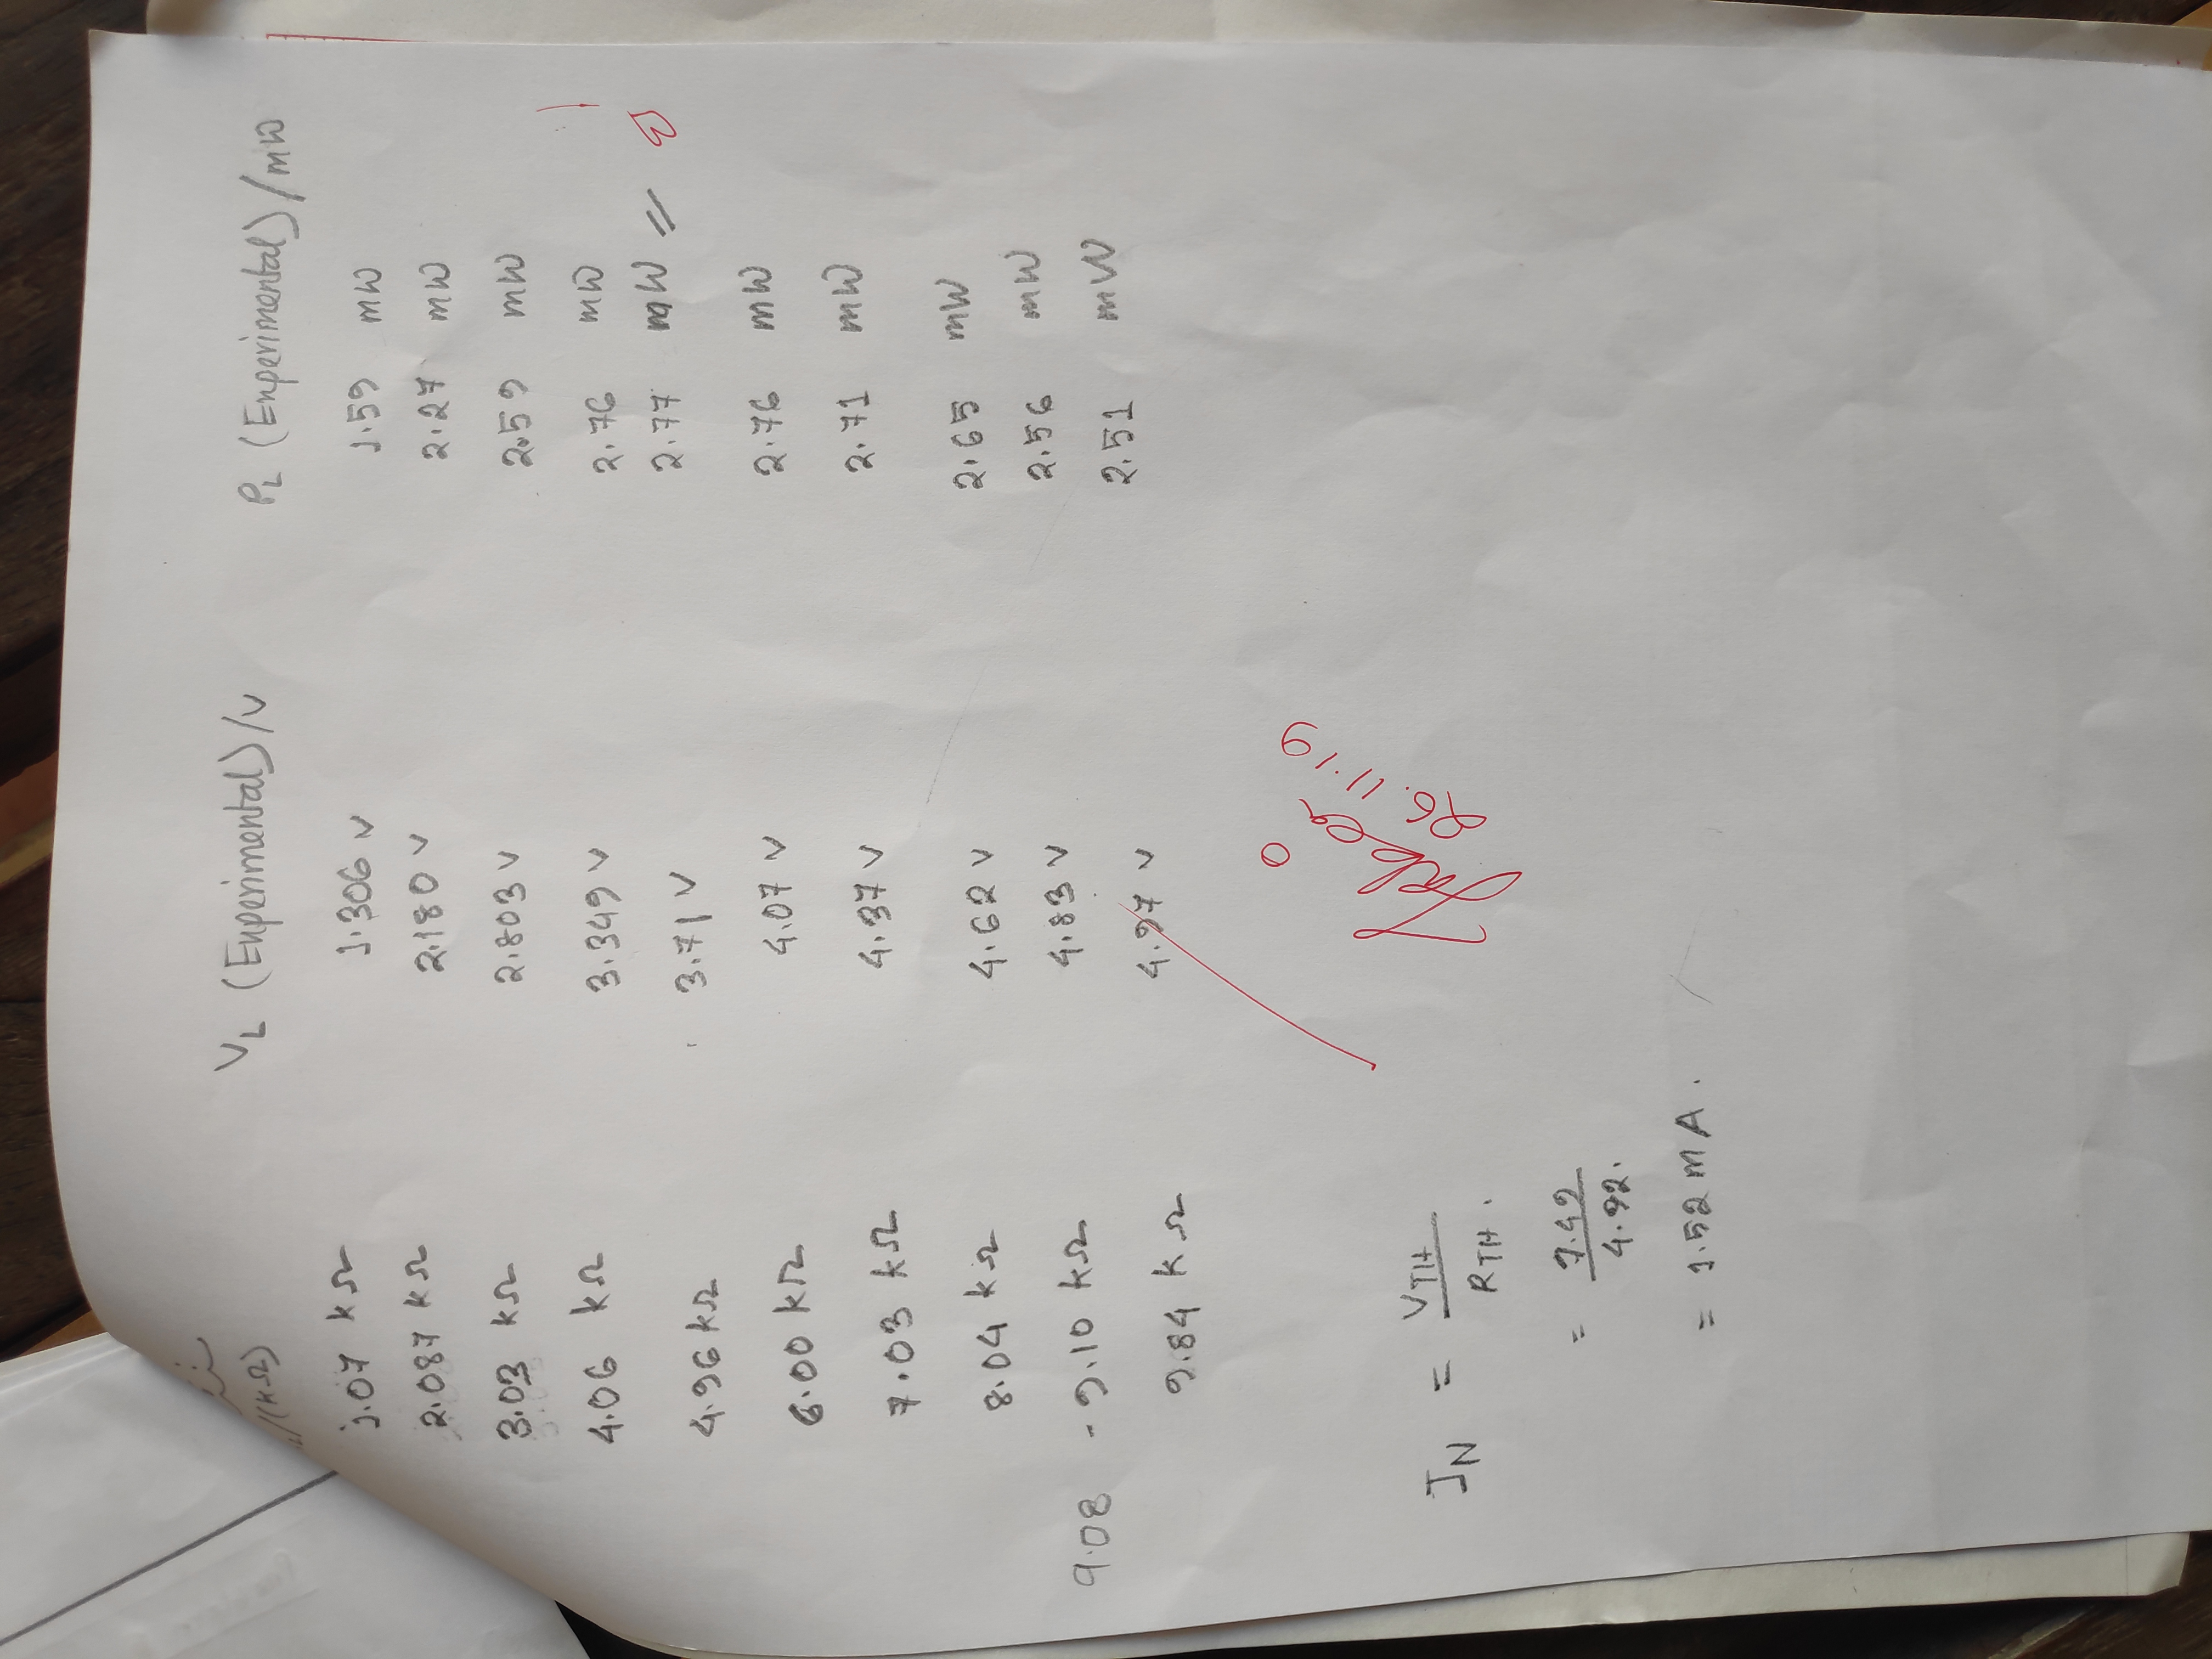 /(kΩ) V_L (Experimental)/V P_L (Experimental)/mW
1.07 kΩ 1.306 V 1.59 mW
2.087 kΩ 2.180 V 2.27 mW
3.03 kΩ 2.803 V 2.59 mW
4.06 kΩ 3.349 V 2.76 mW
4.96 kΩ 3.71 V 2.77 mW
6.00 kΩ 4.07 V 2.76 mW
7.03 kΩ 4.37 V 2.71 mW
8.04 kΩ 4.62 V 2.65 mW
9.08 - 9.10 kΩ 4.83 V 2.56 mW
9.84 kΩ 4.97 V 2.51 mW
26.11.19
I_N = V_TH / R_TH.
= 7.49 / 4.92.
= 1.52 mA.